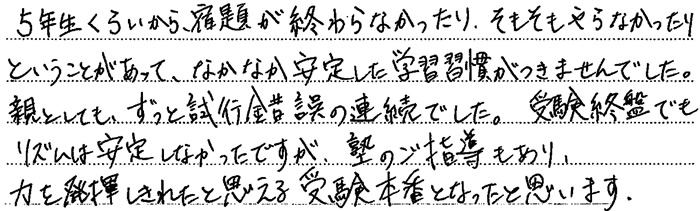 5年生くらいから、宿題が終わらなかったり、そもそもやらなかったり
ということがあって、なかなか安定した学習習慣がつきませんでした。
親としても、ずっと試行錯誤の連続でした。 受験終盤でも
リズムは安定しなかったですが、塾のご指導もあり、
力を発揮しきれたと思える受験本番となったと思います。